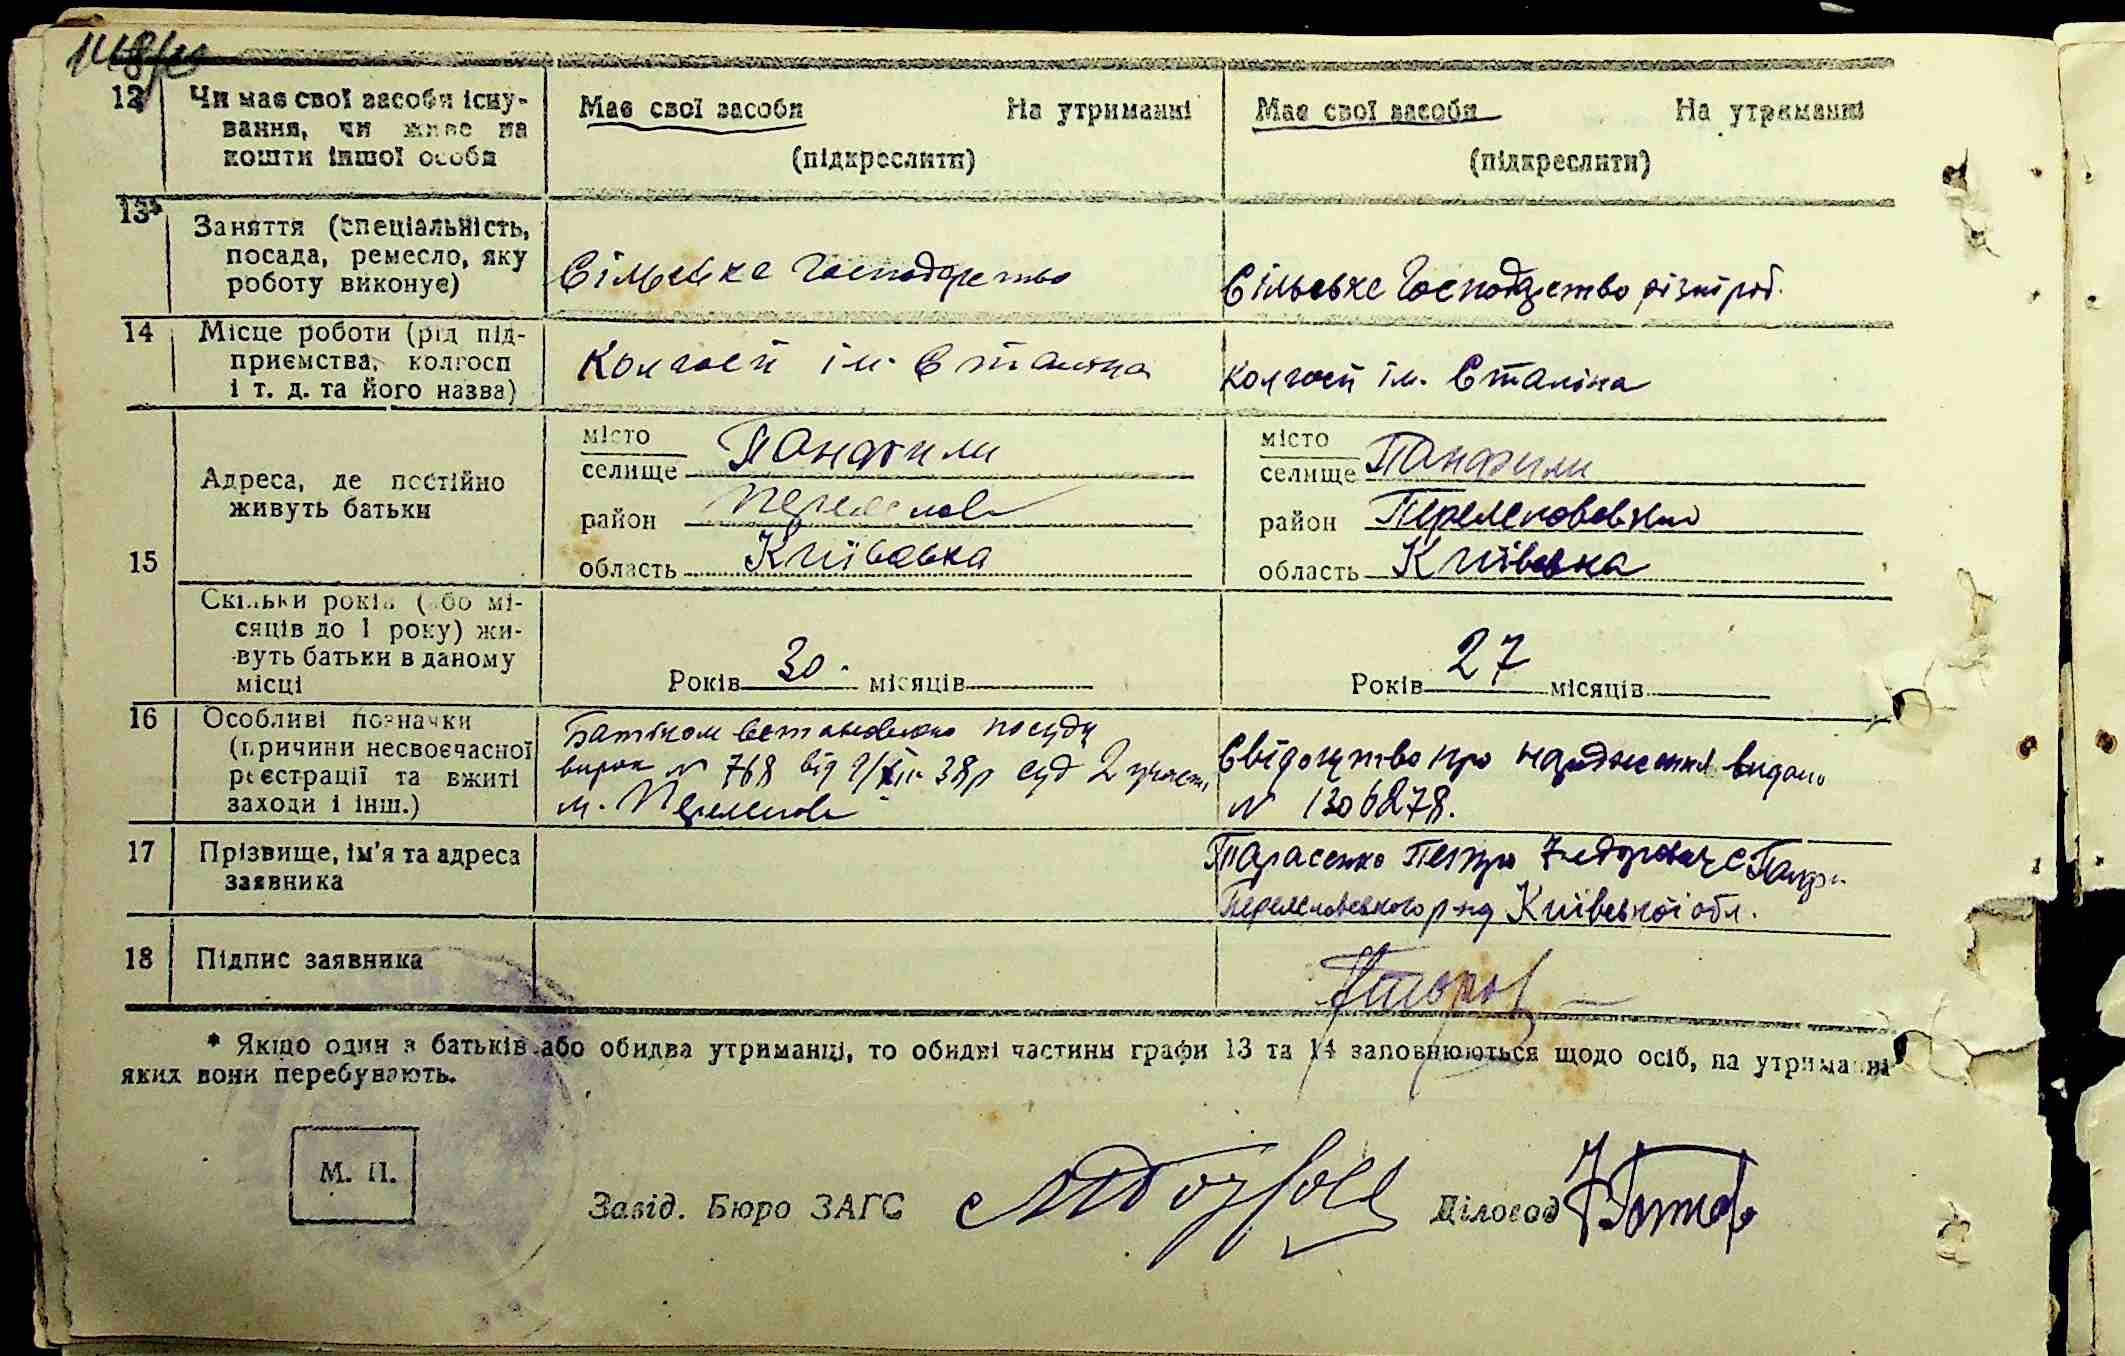 148/
12 Чи має свої засоби існу- Має свої засоби На утриманні Має свої засоби На утриманні
вання, чи живе на
кошти іншої особи (підкреслити) (підкреслити)
13* Заняття (спеціальність,
посада, ремесло, яку Сільське Господарство Сільське Господарство різні роб.
роботу виконує)
14 Місце роботи (рід під-
приємства, колгосп Колгосп ім. Сталіна Колгосп ім. Сталіна
і т. д. та його назва)
місто Панфили місто Панфили
Адреса, де постійно селище селище
живуть батьки район район
15 область Київська область Київська
Скільки років (або мі-
сяців до 1 року) жи-
вуть батьки в даному Років 30. місяців Років 27 місяців
місці
16 Особливі позначки Батьком встановлено по суду
(причини несвоєчасної вирок № 768 від 38р суд 2 участ. Свідоцтво про народження видано
реєстрації та вжиті м. № 1306278.
заходи і інш.)
17 Прізвище, ім'я та адреса Тарасенко Петро с Панфи
заявника р-ну Київської обл.
18 Підпис заявника
* Якщо один з батьків або обидва утриманці, то обидві частини графи 13 та 14 заповнюються щодо осіб, на утриманні
яких вони перебувають.
М. П.
Завід. Бюро ЗАГС Діловод